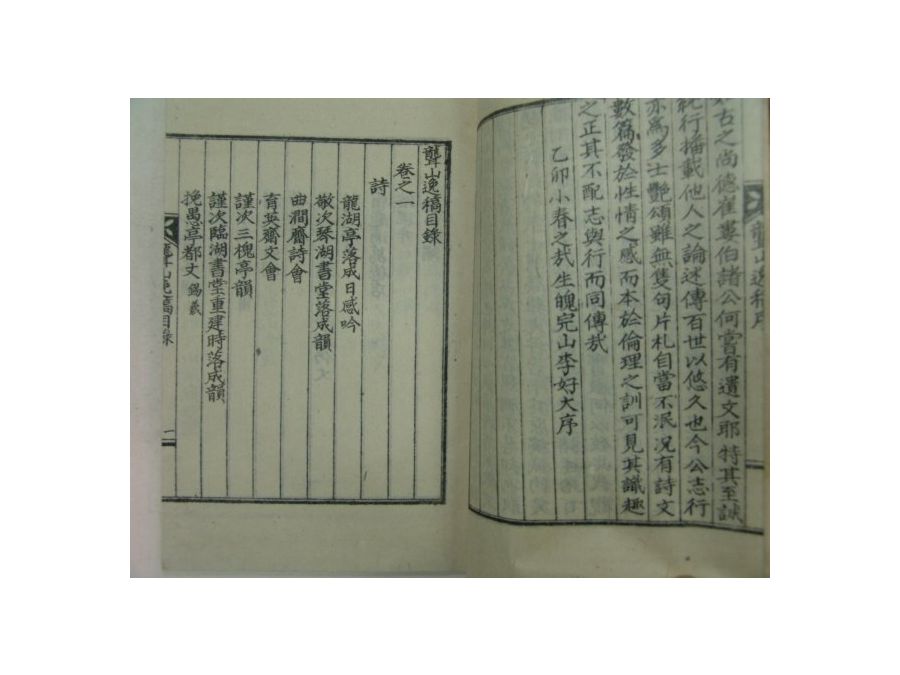 聾山逸稿序
古之尚德崔婁伯諸公何嘗有遺文耶特其至誠
純行播載他人之論述傳百世以悠久也今公志行
亦爲多士艶頌雖無隻句片札自當不泯况有詩文
數篇發於性情之感而本於倫理之訓可見其識趣
之正其不配志與行而同傳哉
乙卯小春之哉生魄完山李好大序
聾山逸稿目錄
卷之一
詩
龍湖亭落成日感吟
敬次琴湖書堂落成韻
曲澗齋詩會
育英齋文會
謹次三槐亭韻
謹次臨湖書堂重建時落成韻
挽愚亭都丈 錫羲
聾山逸稿目錄
一